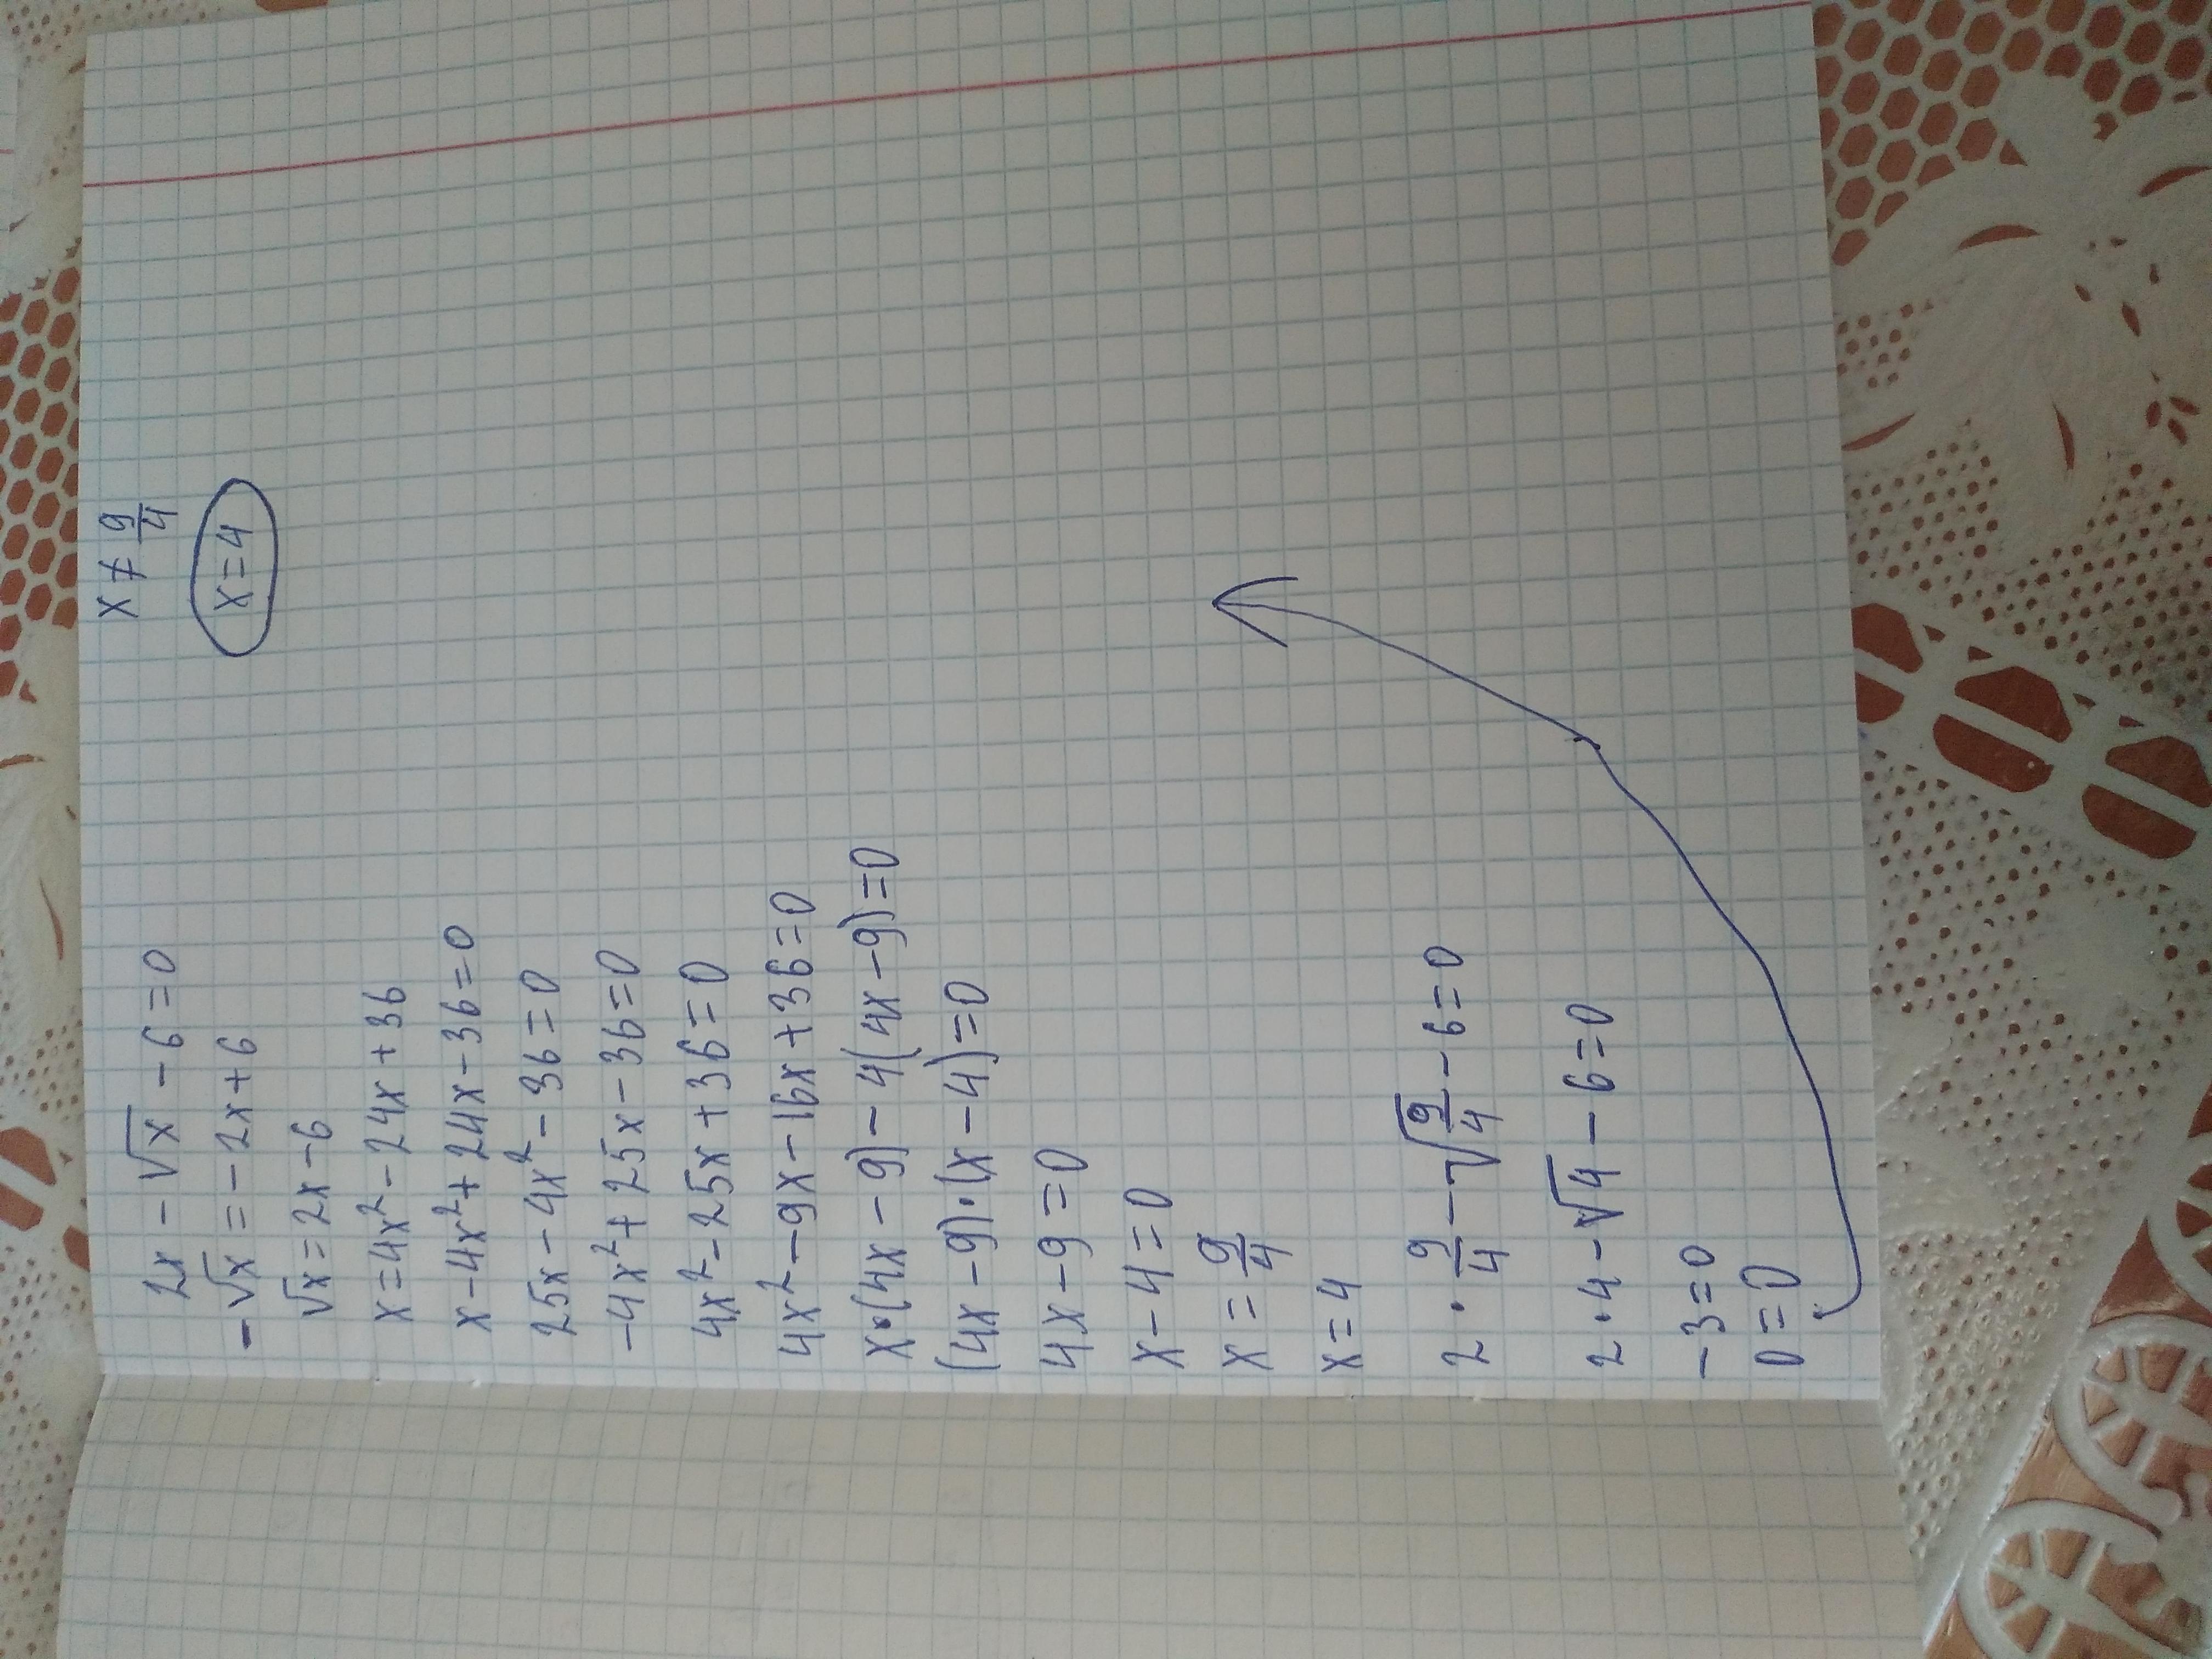 2x - √x - 6 = 0
-√x = -2x + 6
√x = 2x - 6
x = 4x² - 24x + 36
x - 4x² + 24x - 36 = 0
25x - 4x² - 36 = 0
-4x² + 25x - 36 = 0
4x² - 25x + 36 = 0
4x² - 9x - 16x + 36 = 0
x·(4x - 9) - 4(4x - 9) = 0
(4x - 9)·(x - 4) = 0
4x - 9 = 0
x - 4 = 0
x = 9/4
x = 4
2 · 9/4 - √(9/4) - 6 = 0
2 · 4 - √4 - 6 = 0
-3 = 0
0 = 0
x ≠ 9/4
x = 4